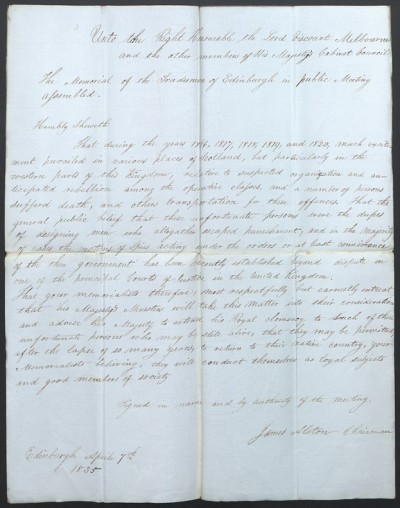 Unto the Right Honorable the Lord Viscount Melbourne
and the other members of His Majesty's Cabinet Council
The Memorial of the Tradesmen of Edinburgh in public Meeting
assembled.
Humbly Sheweth
That during the years 1816, 1817, 1818, 1819, and 1820, much excite
ment prevailed in various places of Scotland, but particularly in the
western parts of this Kingdom, relative to suspected organization and an-
ticipated rebellion among the operative classes, and a number of persons
suffered death, and others transportation for their offences. That the
general public belief that these unfortunate persons were the dupes
of designing men who altogether escaped punishment, and in the majority
of cases the victims of Spies acting under the orders or at least connivance
of the then government has been recently established beyond dispute in
one of the principal Courts of Justice in the United Kingdom.
That your memorialists therefore most respectfully but earnestly entreat
that his Majesty's Ministers will take this matter into their consideration
and advise his Majesty to extend his Royal clemency to such of these
unfortunate persons who may be still alive, that they may be permitted
after the lapse of so many years, to return to their native country, your
Memorialists believing, they will conduct themselves as loyal subjects
and good members of society
Signed in name and by authority of the meeting.
James Chairman
Edinburgh April 7th
1835